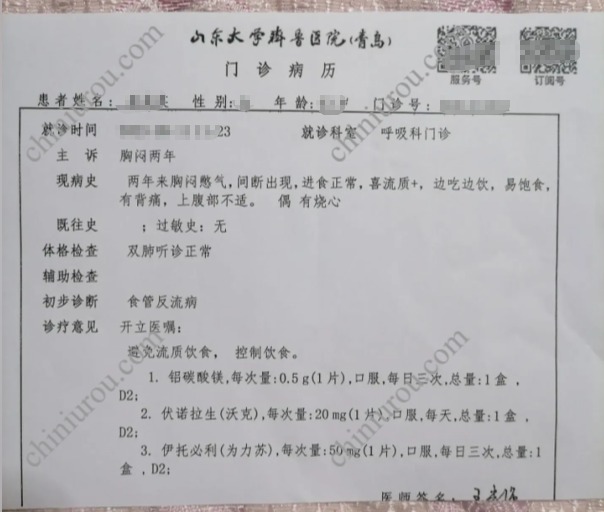 山东大学齐鲁医院(青岛)
门诊病历
服务号 订阅号
患者姓名: 性别: 年龄: 门诊号:
就诊时间 23 就诊科室 呼吸科门诊
主诉 胸闷两年
现病史 两年来胸闷憋气,间断出现,进食正常,喜流质+,边吃边饮,易饱食,
有背痛,上腹部不适。 偶 有烧心
既往史 ;过敏史:无
体格检查 双肺听诊正常
辅助检查
初步诊断 食管反流病
诊疗意见 开立医嘱:
避免流质饮食, 控制饮食。
1. 铝碳酸镁,每次量:0.5g(1片),口服,每日三次,总量:1盒,
D2;
2. 伏诺拉生(沃克),每次量:20mg(1片),口服,每天,总量:1盒,
D2;
3. 伊托必利(为力苏),每次量:50mg(1片),口服,每日三次,总量:1
盒,D2;
医师签名:
chiniurou.com
chiniurou.com
chiniurou.com
chiniurou.com